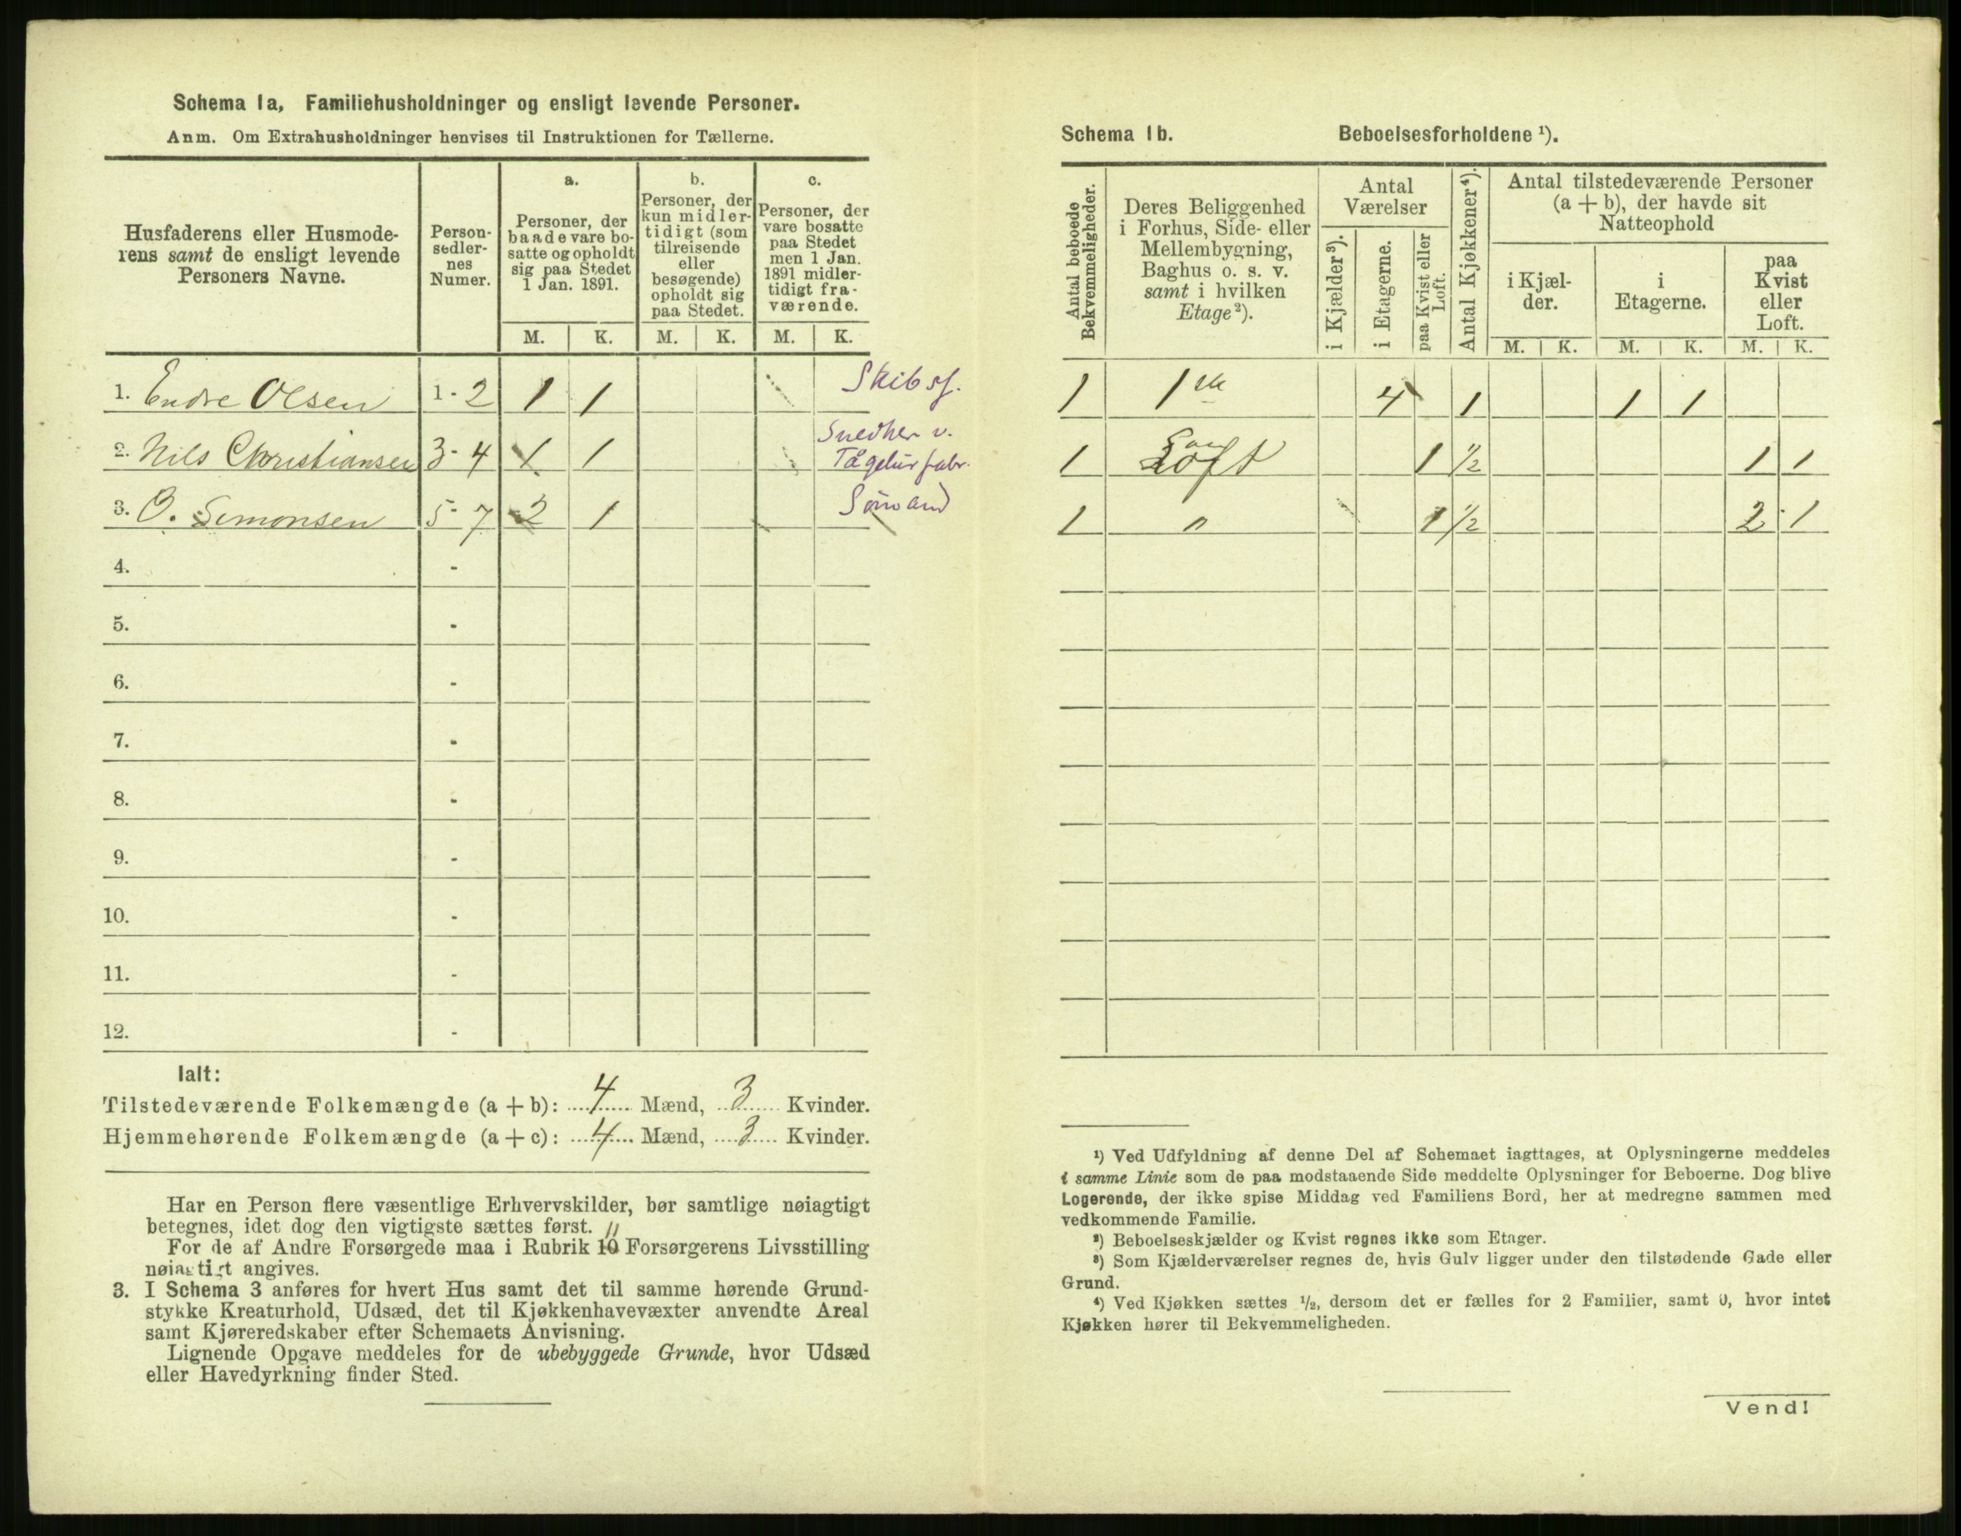 Schema 1a, Familiehusholdninger og ensligt levende Personer.
Anm. Om Extrahusholdninger henvises til Instruktionen for Tællerne.
Husfaderens eller Husmode-
rens samt de ensligt levende
Personers Navne.
Person-
sedler-
nes
Numer.
a.
Personer, der
baade vare bo-
satte og opholdt
sig paa Stedet
1 Jan. 1891.
b.
Personer, der
kun midler-
tidigt (som
tilreisende
eller
besøgende)
opholdt sig
paa Stedet.
c.
Personer, der
vare bosatte
paa Stedet
men 1 Jan.
1891 midler-
tidigt fra-
værende.
M. K. M. K. M. K.
1. Endre Olsen 1 - 2 1 1 Skibsf.
2. Nils Christiansen 3 - 4 1 1 Snedker v.
3. O. Simonsen 5 - 7 2 1
4. -
5. -
6. -
7. -
8. -
9. -
10. -
11. -
12. -
Ialt:
Tilstedeværende Folkemængde (a + b): 4 Mænd, 3 Kvinder.
Hjemmehørende Folkemængde (a + c): 4 Mænd, 3 Kvinder.
Har en Person flere væsentlige Erhvervskilder, bør samtlige nøiagtigt
betegnes, idet dog den vigtigste sættes først.
For de af Andre Forsørgede maa i Rubrik 11 Forsørgerens Livsstilling
nøiagtigt angives.
3. I Schema 3 anføres for hvert Hus samt det til samme hørende Grund-
stykke Kreaturhold, Udsæd, det til Kjøkkenhavevæxter anvendte Areal
samt Kjøreredskaber efter Schemaets Anvisning.
Lignende Opgave meddeles for de ubebyggede Grunde, hvor Udsæd
eller Havedyrkning finder Sted.
Schema 1b. Beboelsesforholdene ¹).
Antal beboede
Bekvemmeligheder.
Deres Beliggenhed
i Forhus, Side- eller
Mellembygning,
Baghus o. s. v.
samt i hvilken
Etage ²).
Antal
Værelser
i Kjælder ³).
i Etagerne.
paa Kvist eller
Loft.
Antal Kjøkkener ⁴).
Antal tilstedeværende Personer
(a + b), der havde sit
Natteophold
i Kjæl-
der.
i
Etagerne.
paa
Kvist
eller
Loft.
M. K. M. K. M. K.
1 1ste 4 1 1 1
1 Loft 1 ½ 1 1
1 " 1 ½ 2 1
¹) Ved Udfyldning af denne Del af Schemaet iagttages, at Oplysningerne meddeles
i samme Linie som de paa modstaaende Side meddelte Oplysninger for Beboerne. Dog blive
Logerende, der ikke spise Middag ved Familiens Bord, her at medregne sammen med
vedkommende Familie.
²) Beboelseskjælder og Kvist regnes ikke som Etager.
³) Som Kjælderværelser regnes de, hvis Gulv ligger under den tilstødende Gade eller
Grund.
⁴) Ved Kjøkken sættes ½, dersom det er fælles for 2 Familier, samt 0, hvor intet
Kjøkken hører til Bekvemmeligheden.
Vend!